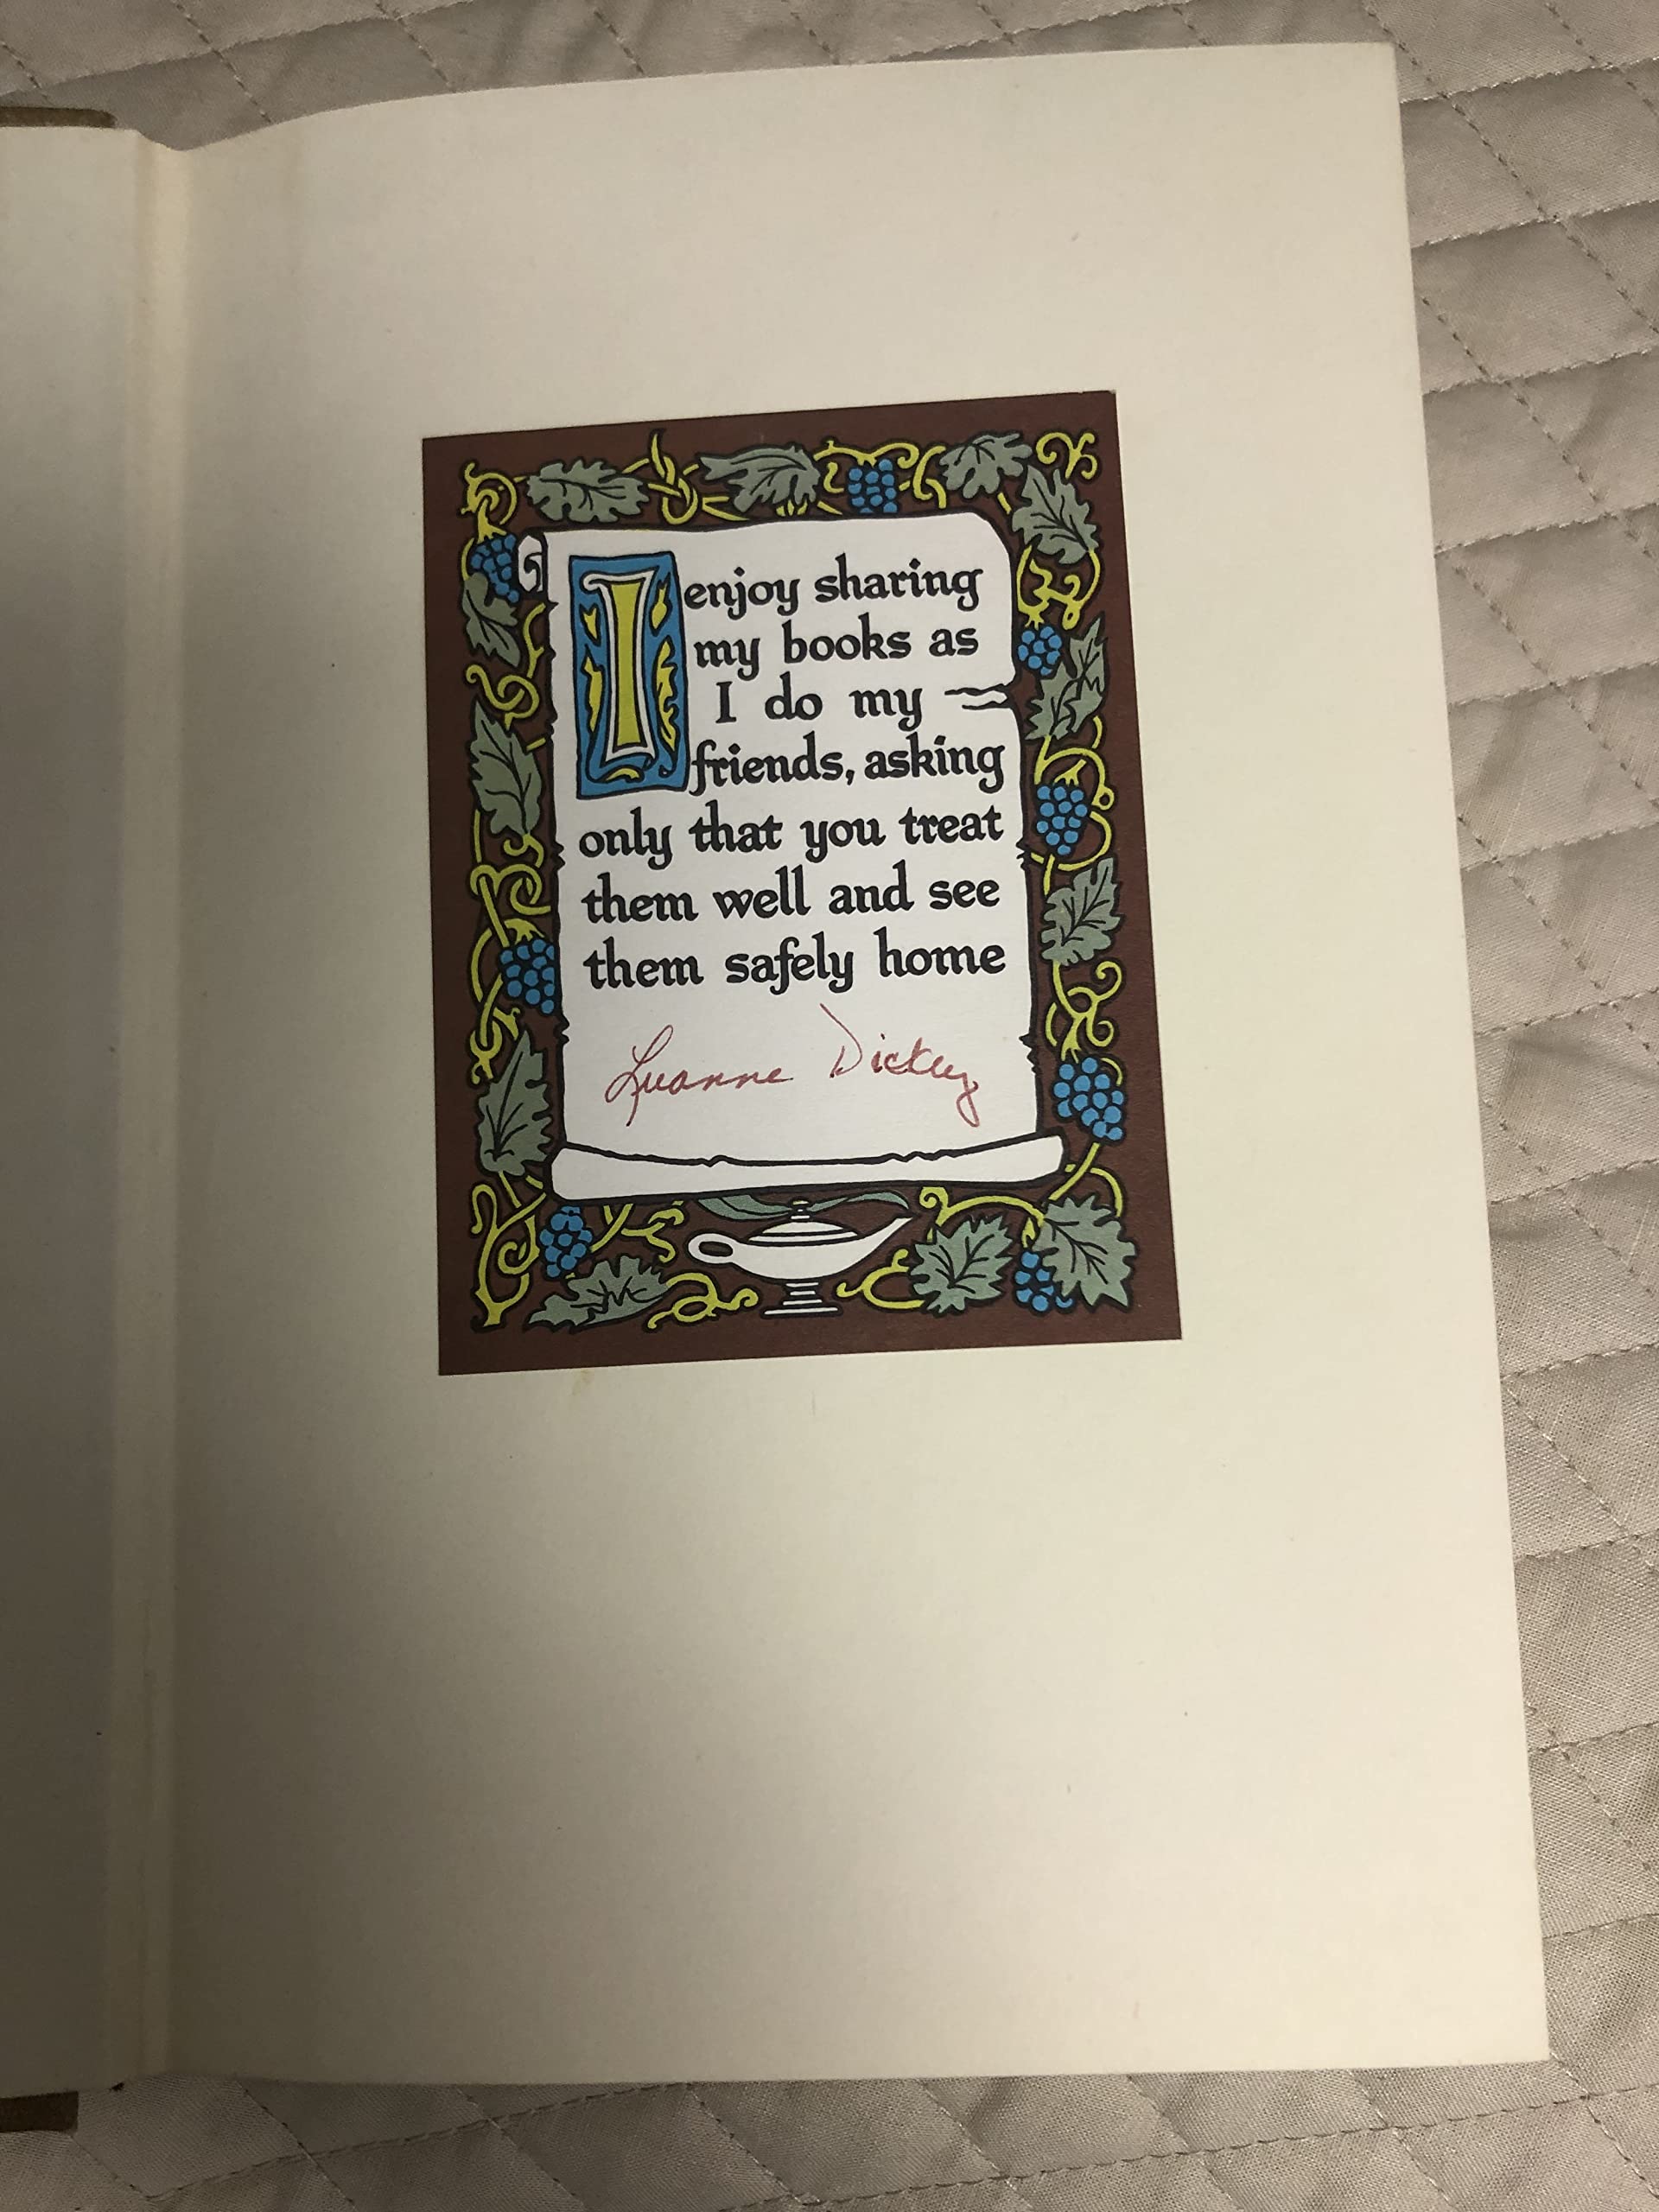 I enjoy sharing
my books as
I do my
friends, asking
only that you treat
them well and see
them safely home
Luanne Dickey